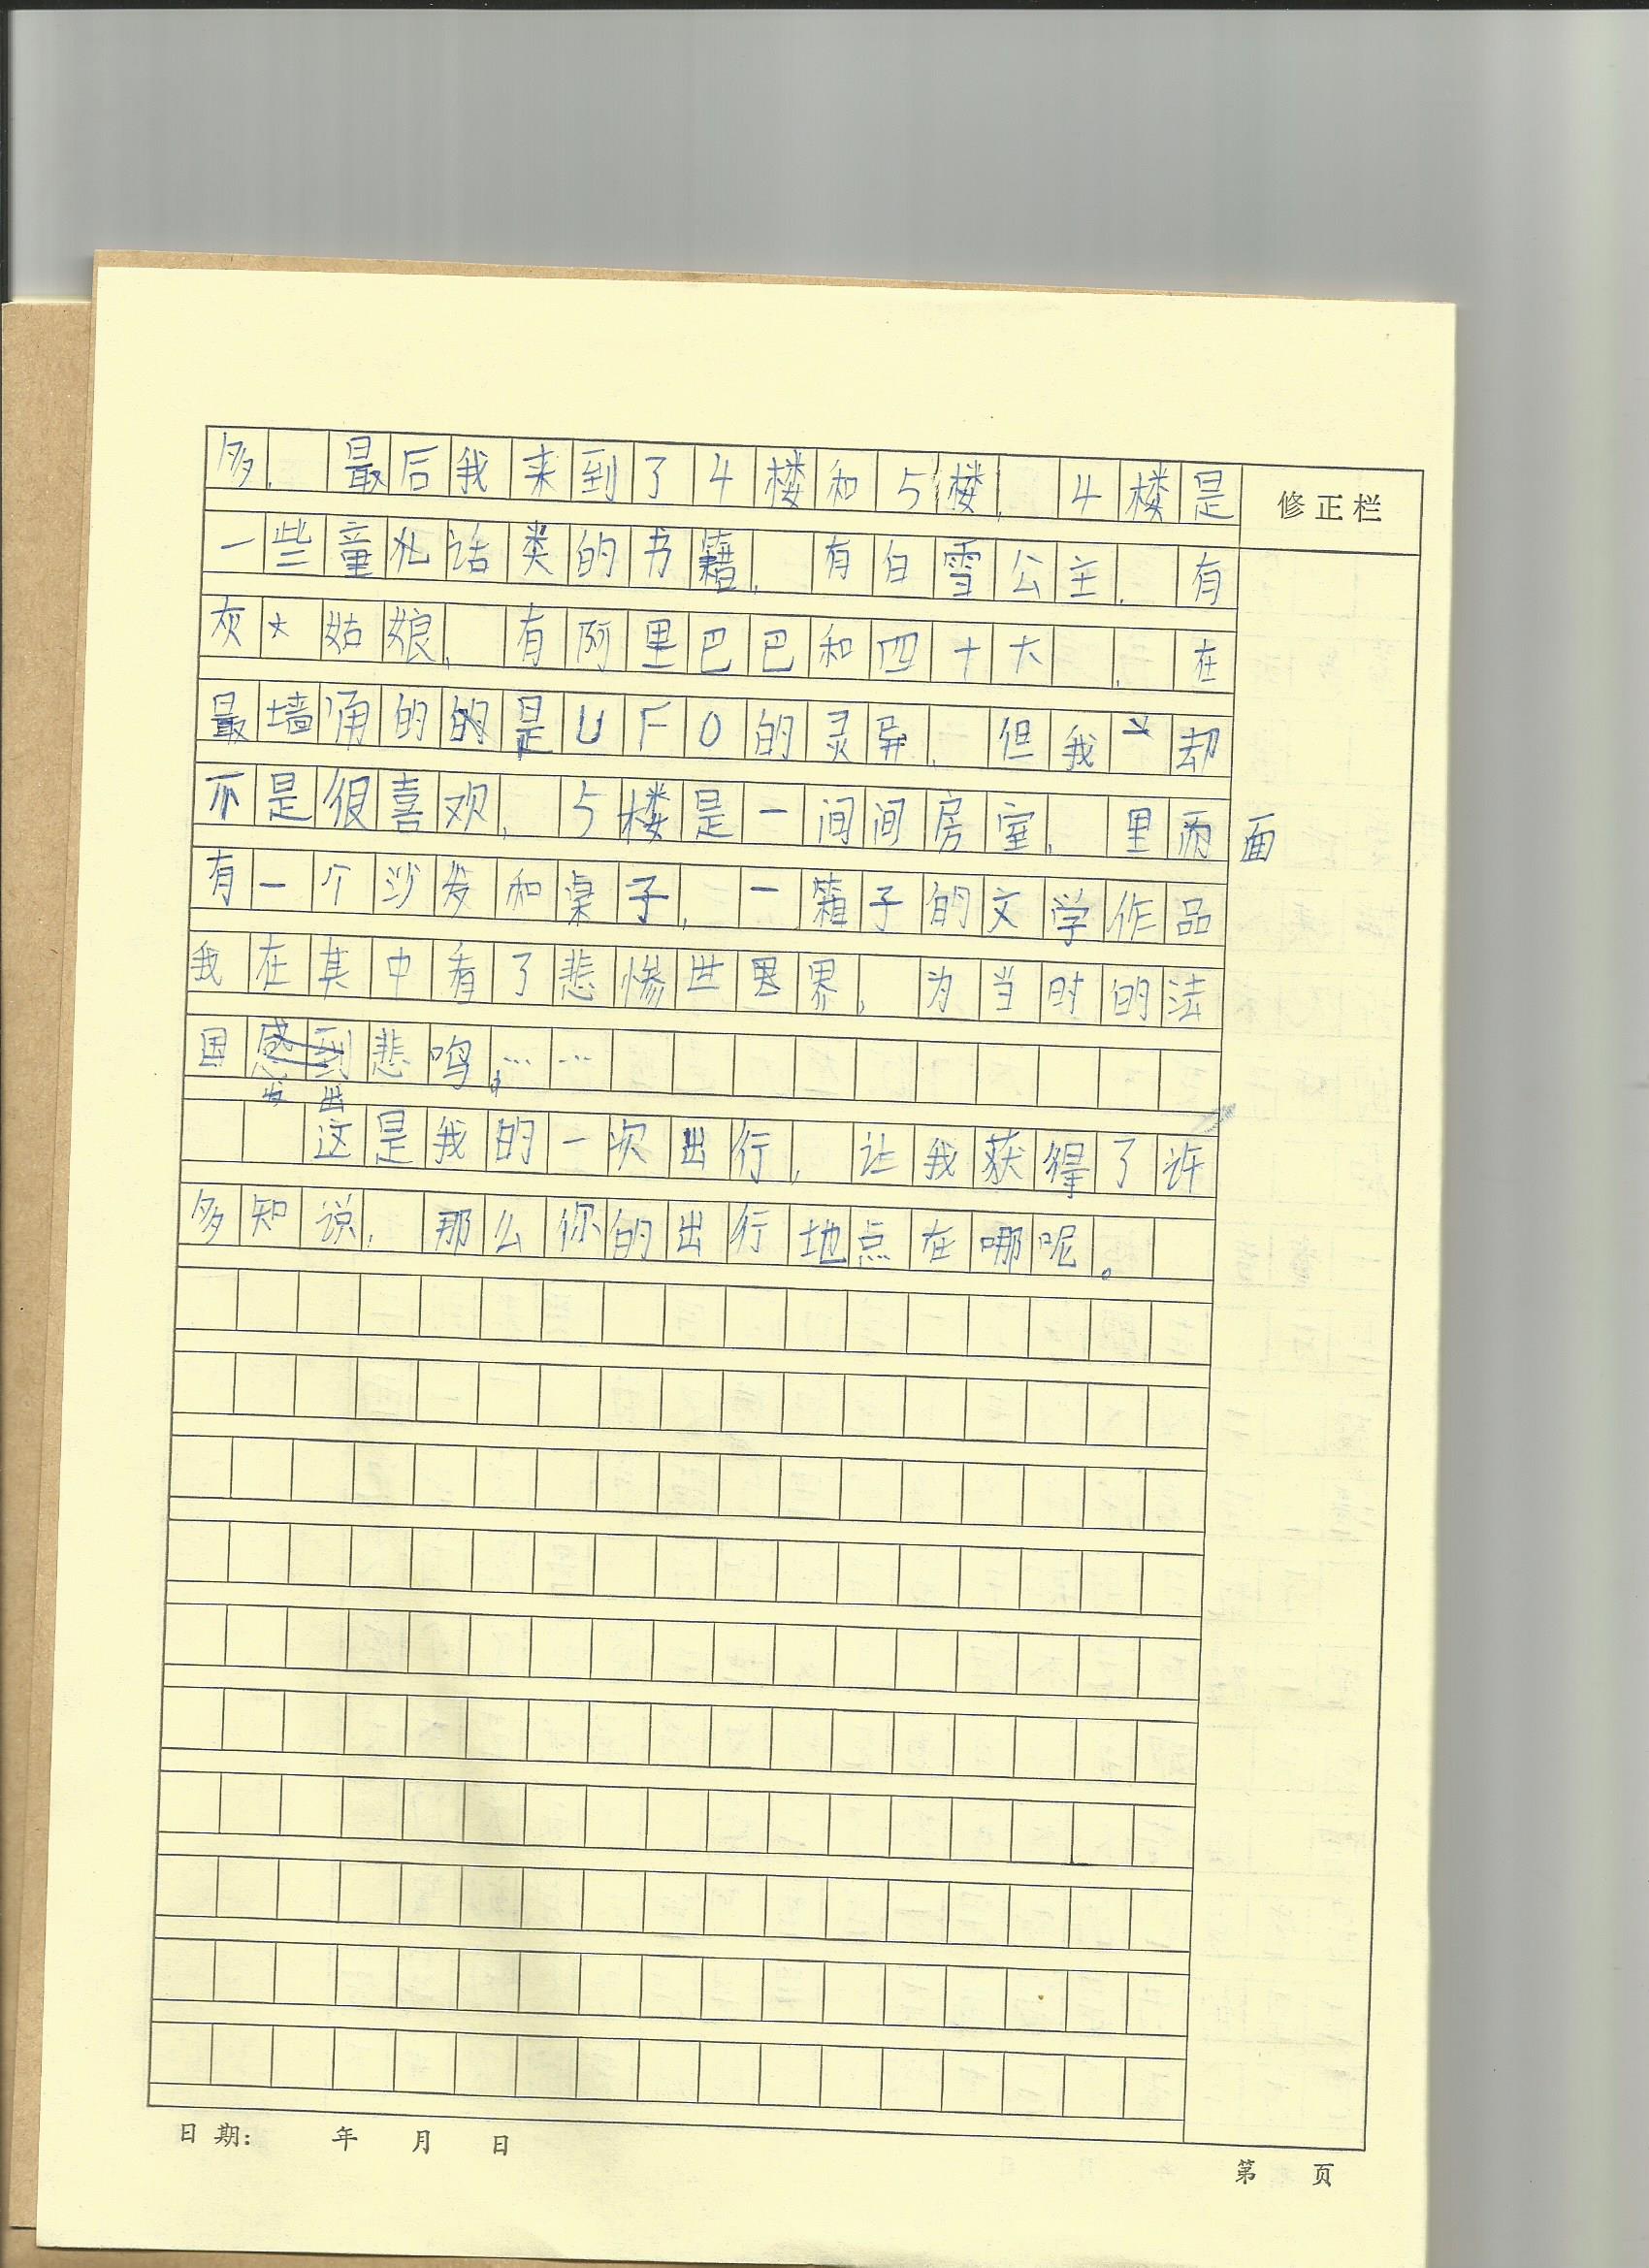 多，最后我来到了4楼和5楼，4楼是
修正栏
一些童话类的书籍，有白雪公主，有
灰姑娘，有阿里巴巴和四十大，在
最墙角的的是UFO的灵异，但我却
不是很喜欢，5楼是一间间房室，里面
有一个沙发和桌子，一箱子的文学作品
我在其中看了悲惨世界，为当时的法
国发出悲鸣，……
这是我的一次出行，让我获得了许
多知识，那么你的出行地点在哪呢。
日期： 年 月 日
第 页